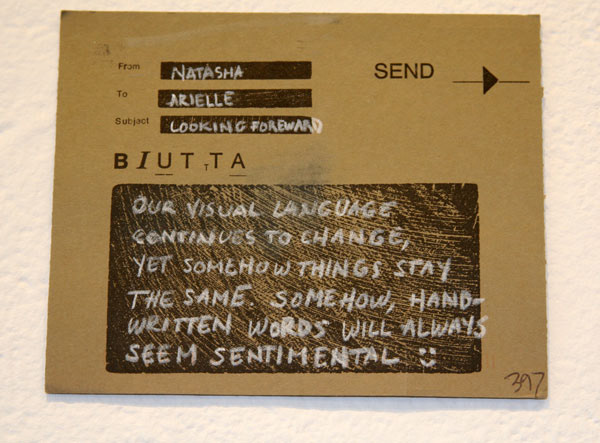 From NATASHA
SEND
To ARIELLE
Subject LOOKING FOREWARD
B I U T T A
OUR VISUAL LANGUAGE
CONTINUES TO CHANGE,
YET SOMEHOW THINGS STAY
THE SAME. SOMEHOW, HAND-
WRITTEN WORDS WILL ALWAYS
SEEM SENTIMENTAL :)
397